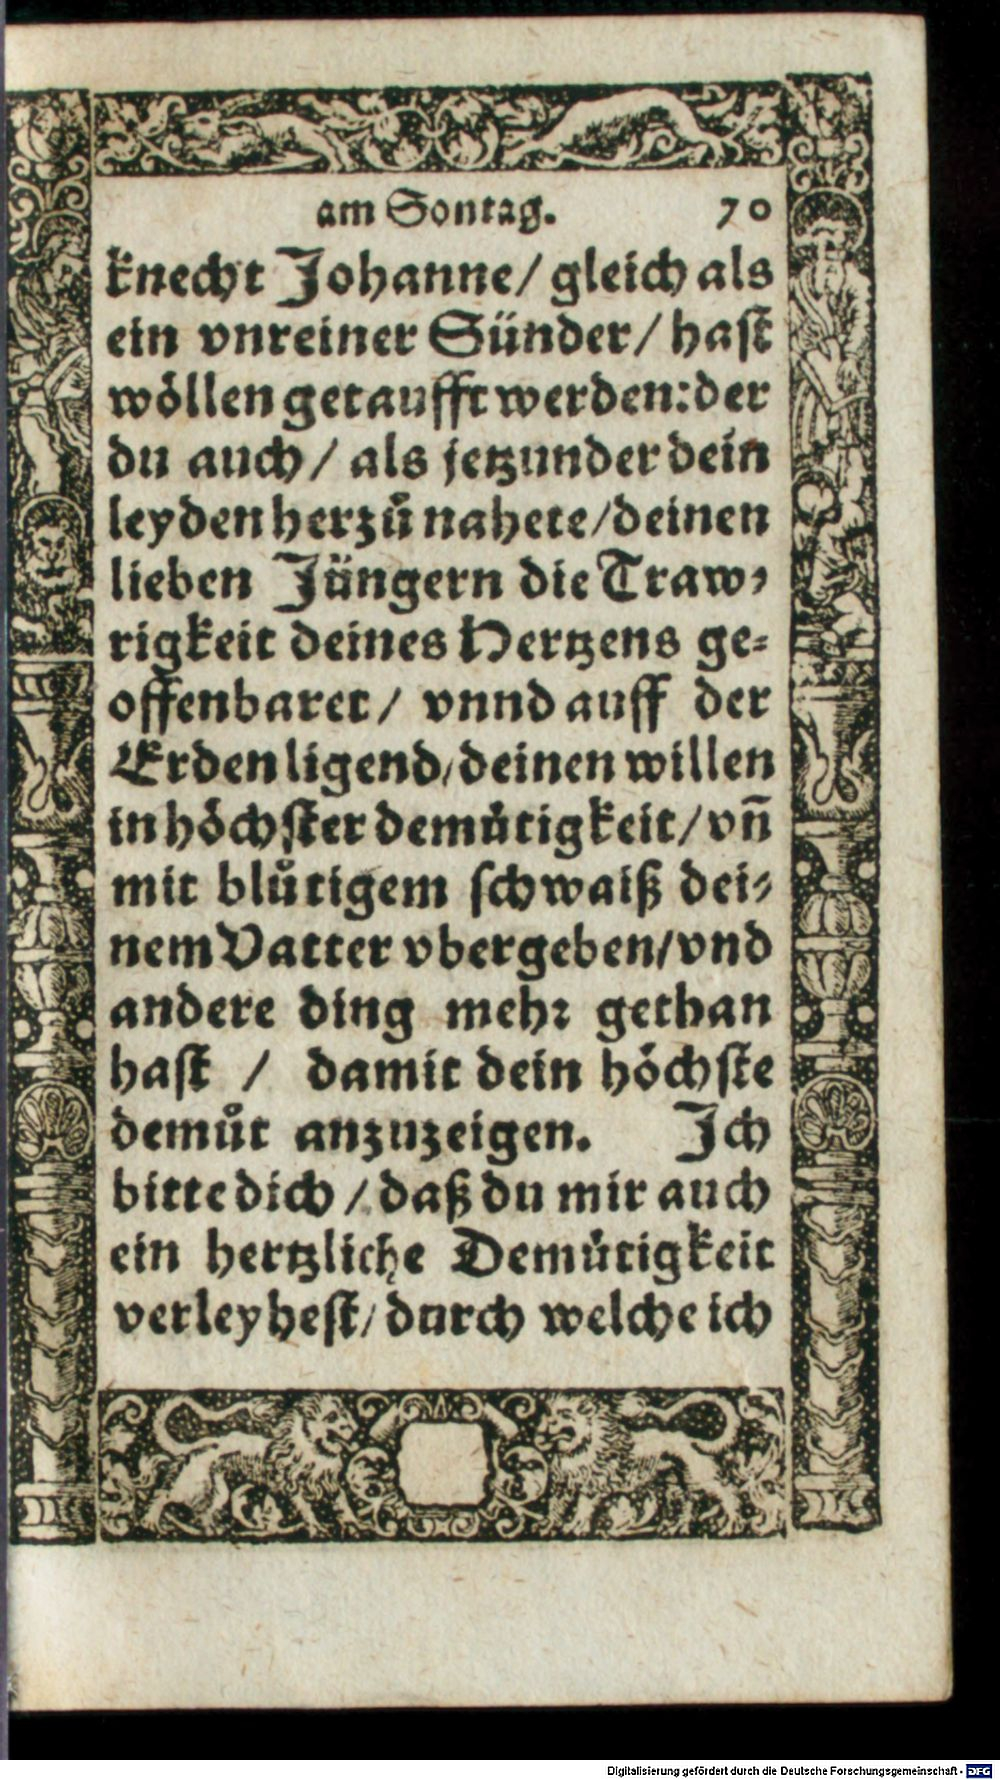 am Sontag. 70
knecht Johanne/ gleich als
ein vnreiner Sünder/ haſt
wöllen getaufft werden: der
du auch/ als jetzunder dein
leyden herzů nahete/ deinen
lieben Jüngern die Traw⸗
rigkeit deines Hertzens ge⸗
offenbaret/ vnnd auff der
Erden ligend/ deinen willen
in höchſter demůtigkeit/ vn̄
mit blůtigem ſchwaiß dei⸗
nem Vatter vbergeben/ vnd
andere ding mehꝛ gethan
haſt / damit dein höchſte
demůt anzuzeigen. Ich
bitte dich / daß du mir auch
ein hertzliche Demůtigkeit
verleyheſt/ durch welche ich
Digitalisierung gefördert durch die Deutsche Forschungsgemeinschaft - DFG